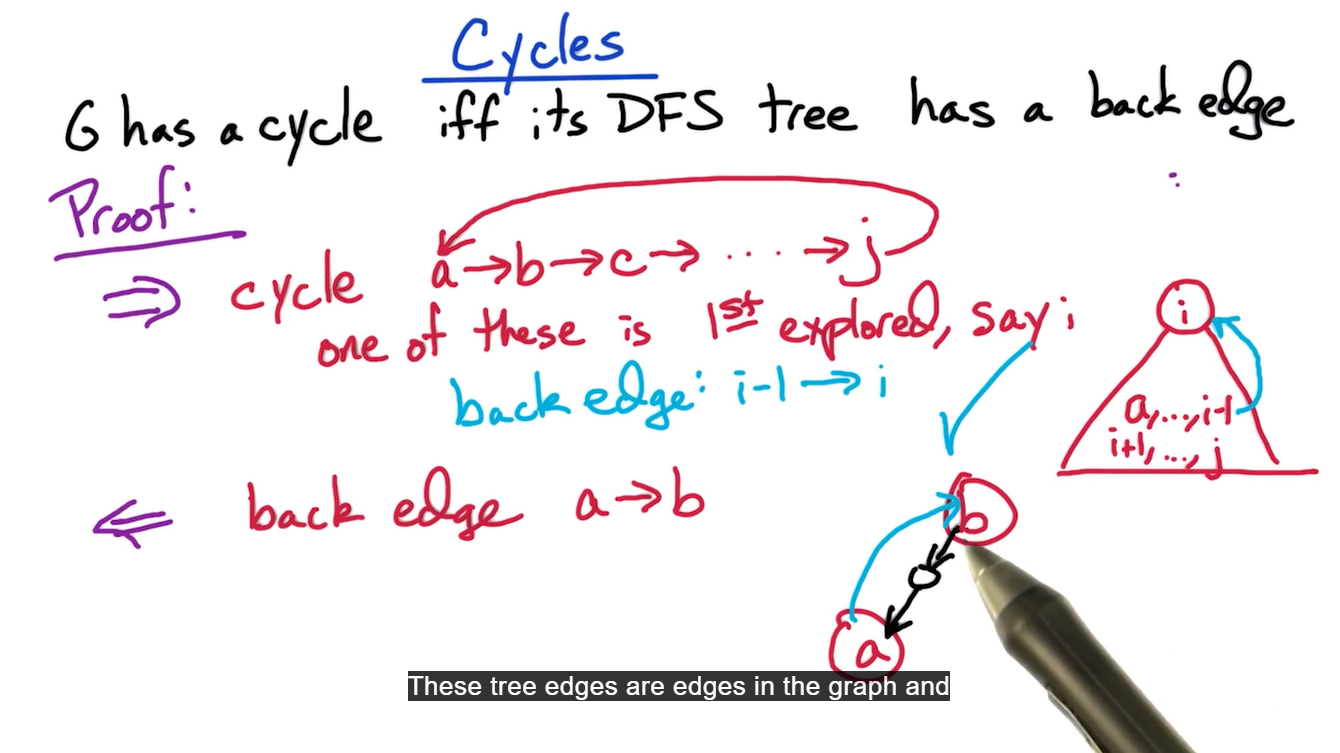 Cycles
G has a cycle iff its DFS tree has a back edge
Proof:
⇒ cycle a→b→c→ ... →j
one of these is 1st explored, say i
back edge: i-1→i
i
a,...,i-1
i+1,..., j
⇐ back edge a→b
b
a
These tree edges are edges in the graph and